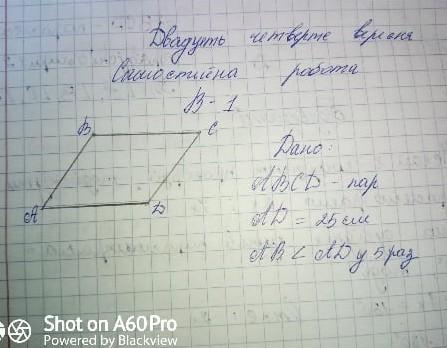 Двадцять четверте вересня
Самостійна робота
В-1
В
С
А
D
Дано:
ABCD - пар
AD = 25 см
AB < AD у 5 раз
Shot on A60Pro
Powered by Blackview